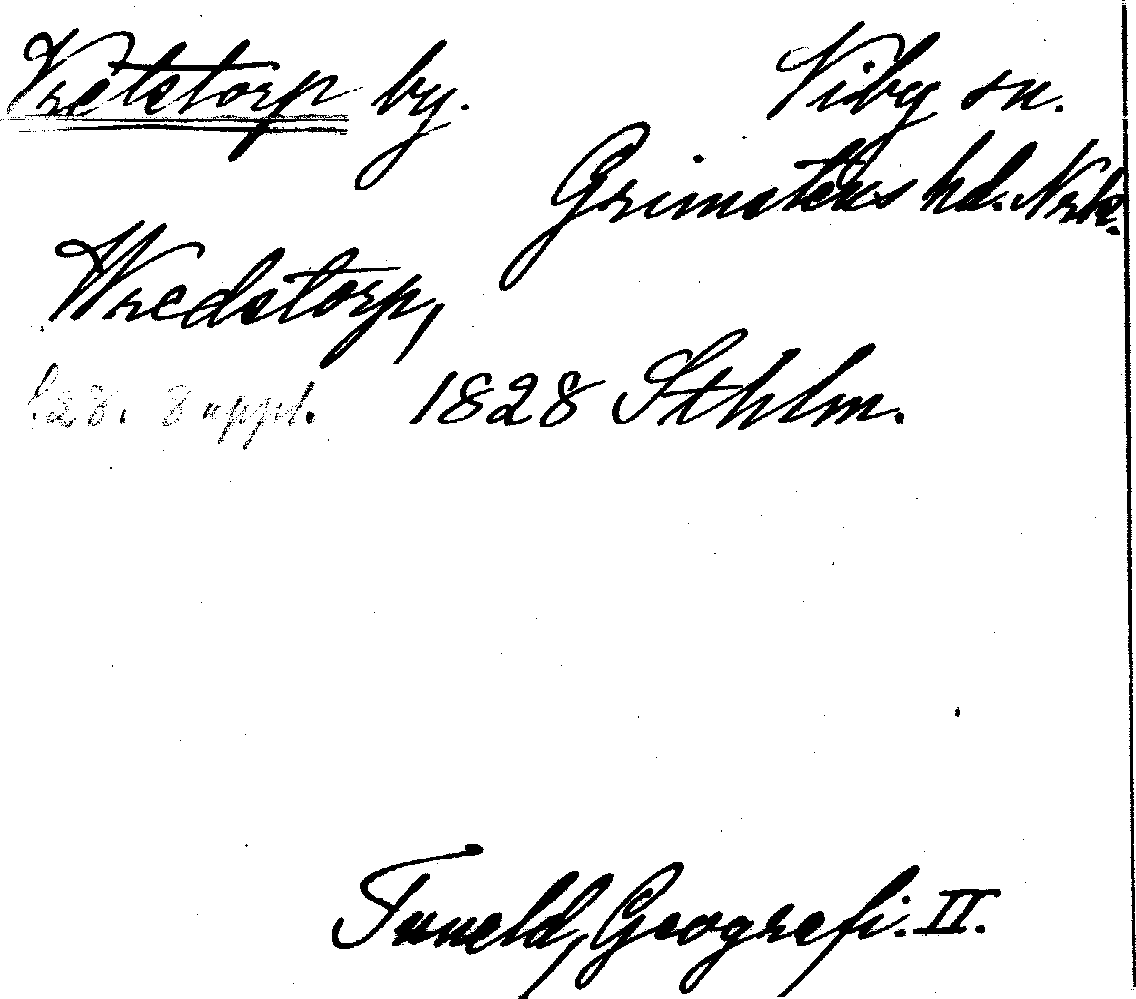 Vretstorp by.
Viby sn.
Grimstens hd. Nrk.
Wredstorp,
s. 28. 8 uppl. 1828 Sthlm.
Tuneld, Geografi. II.